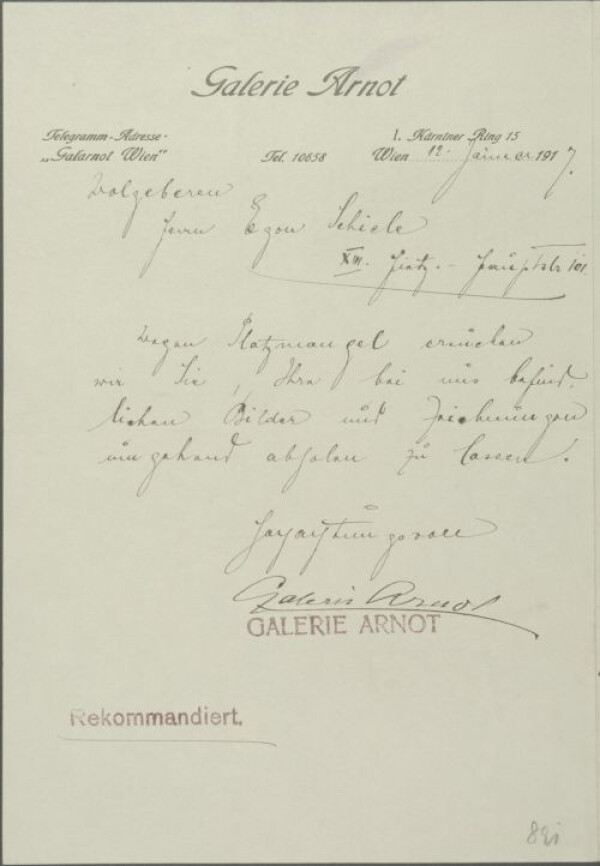 Galerie Arnot
Telegramm-Adresse-
„Galarnot Wien“
Tel. 10658
I. Kärntner Ring 15
Wien 12. Jänner 1917.
Wolgeboren
Herrn Egon Schiele
XIII. Hietz. - Hauptstr 101
Wegen Platzmangel ersuchen
wir Sie, Ihre bei uns befind-
lichen Bilder und Zeichnungen
umgehend abholen zu lassen.
Hochachtungsvoll
Galerie Arnot
GALERIE ARNOT
Rekommandiert.